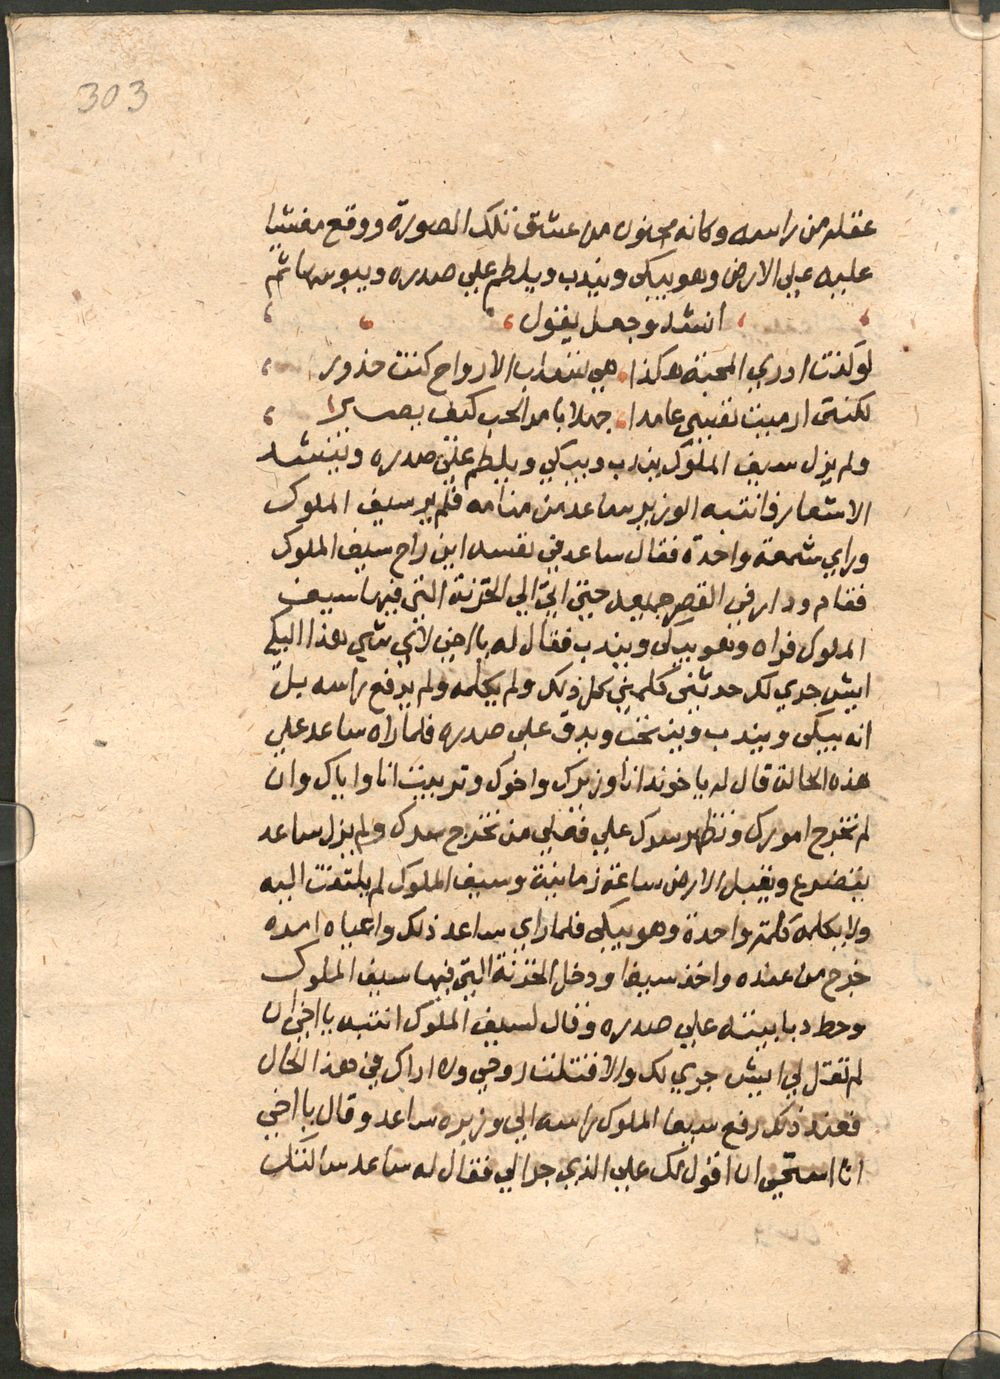 303
عقله من راسه وكانه مجنون من عشق تلك الصورة ووقع مغشيا
عليه علي الارض وهو يبكي ويندب ويلطم علي صدره ويبوسها ثم
انشد وجعل يقول
لو كنت ادري المحبة هكذا هي لتعذاب الارواح كنت حذور
لكنني ارميت نفسي عامدا جهلا بامر الحب كيف يصـيرا
ولم يزل سيف الملوك يندب ويبكي ويلطم علي صدره وينشد
الاشعار فانتبه الوزير ساعد من منامه فلم ير سيف الملوك
وراي شمعة واحدة فقال ساعد في نفسه اين راح سيف الملوك
فقام ودار في القصر جميعه حتي اتي الي الخزنة التي فيها سيف
الملوك فراه وهو يبكي ويندب فقال له يا اخي لاي شي هذا البكي
ايش جري لك حدثني كلمني كل ذلك ولم يكلمه ولم يرفع راسه بل
انه يبكي ويندب وينتخب ويدق علي صدره فلما راه ساعد علي
هذه الحالة قال له يا خوند انا وزيرك واخوك وتربيت انا واياك وان
لم تخرج امورك وتظهر سرك علي فعلي من تخرج سرك ولم يزل ساعد
يتضرع ويقبل الارض ساعة زمانية وسيف الملوك لم يلتفت اليه
ولا يكلمه كلمة واحدة وهو يبكي فلما راي ساعد ذلك واعياه امره
خرج من عنده واخذ سيفا ودخل الخزنة التي فيها سيف الملوك
وحط دبابيته علي صدره وقال لسيف الملوك انتبه يا اخي ان
لم تقل لي ايش جري لك والا قتلت روحي ولا اراك في هذا الحال
فعند ذلك رفع سيف الملوك راسه الي وزيره ساعد وقال يا اخي
انا استحي ان اقول لك علي الذي جرا لي فقال له ساعد سالتك